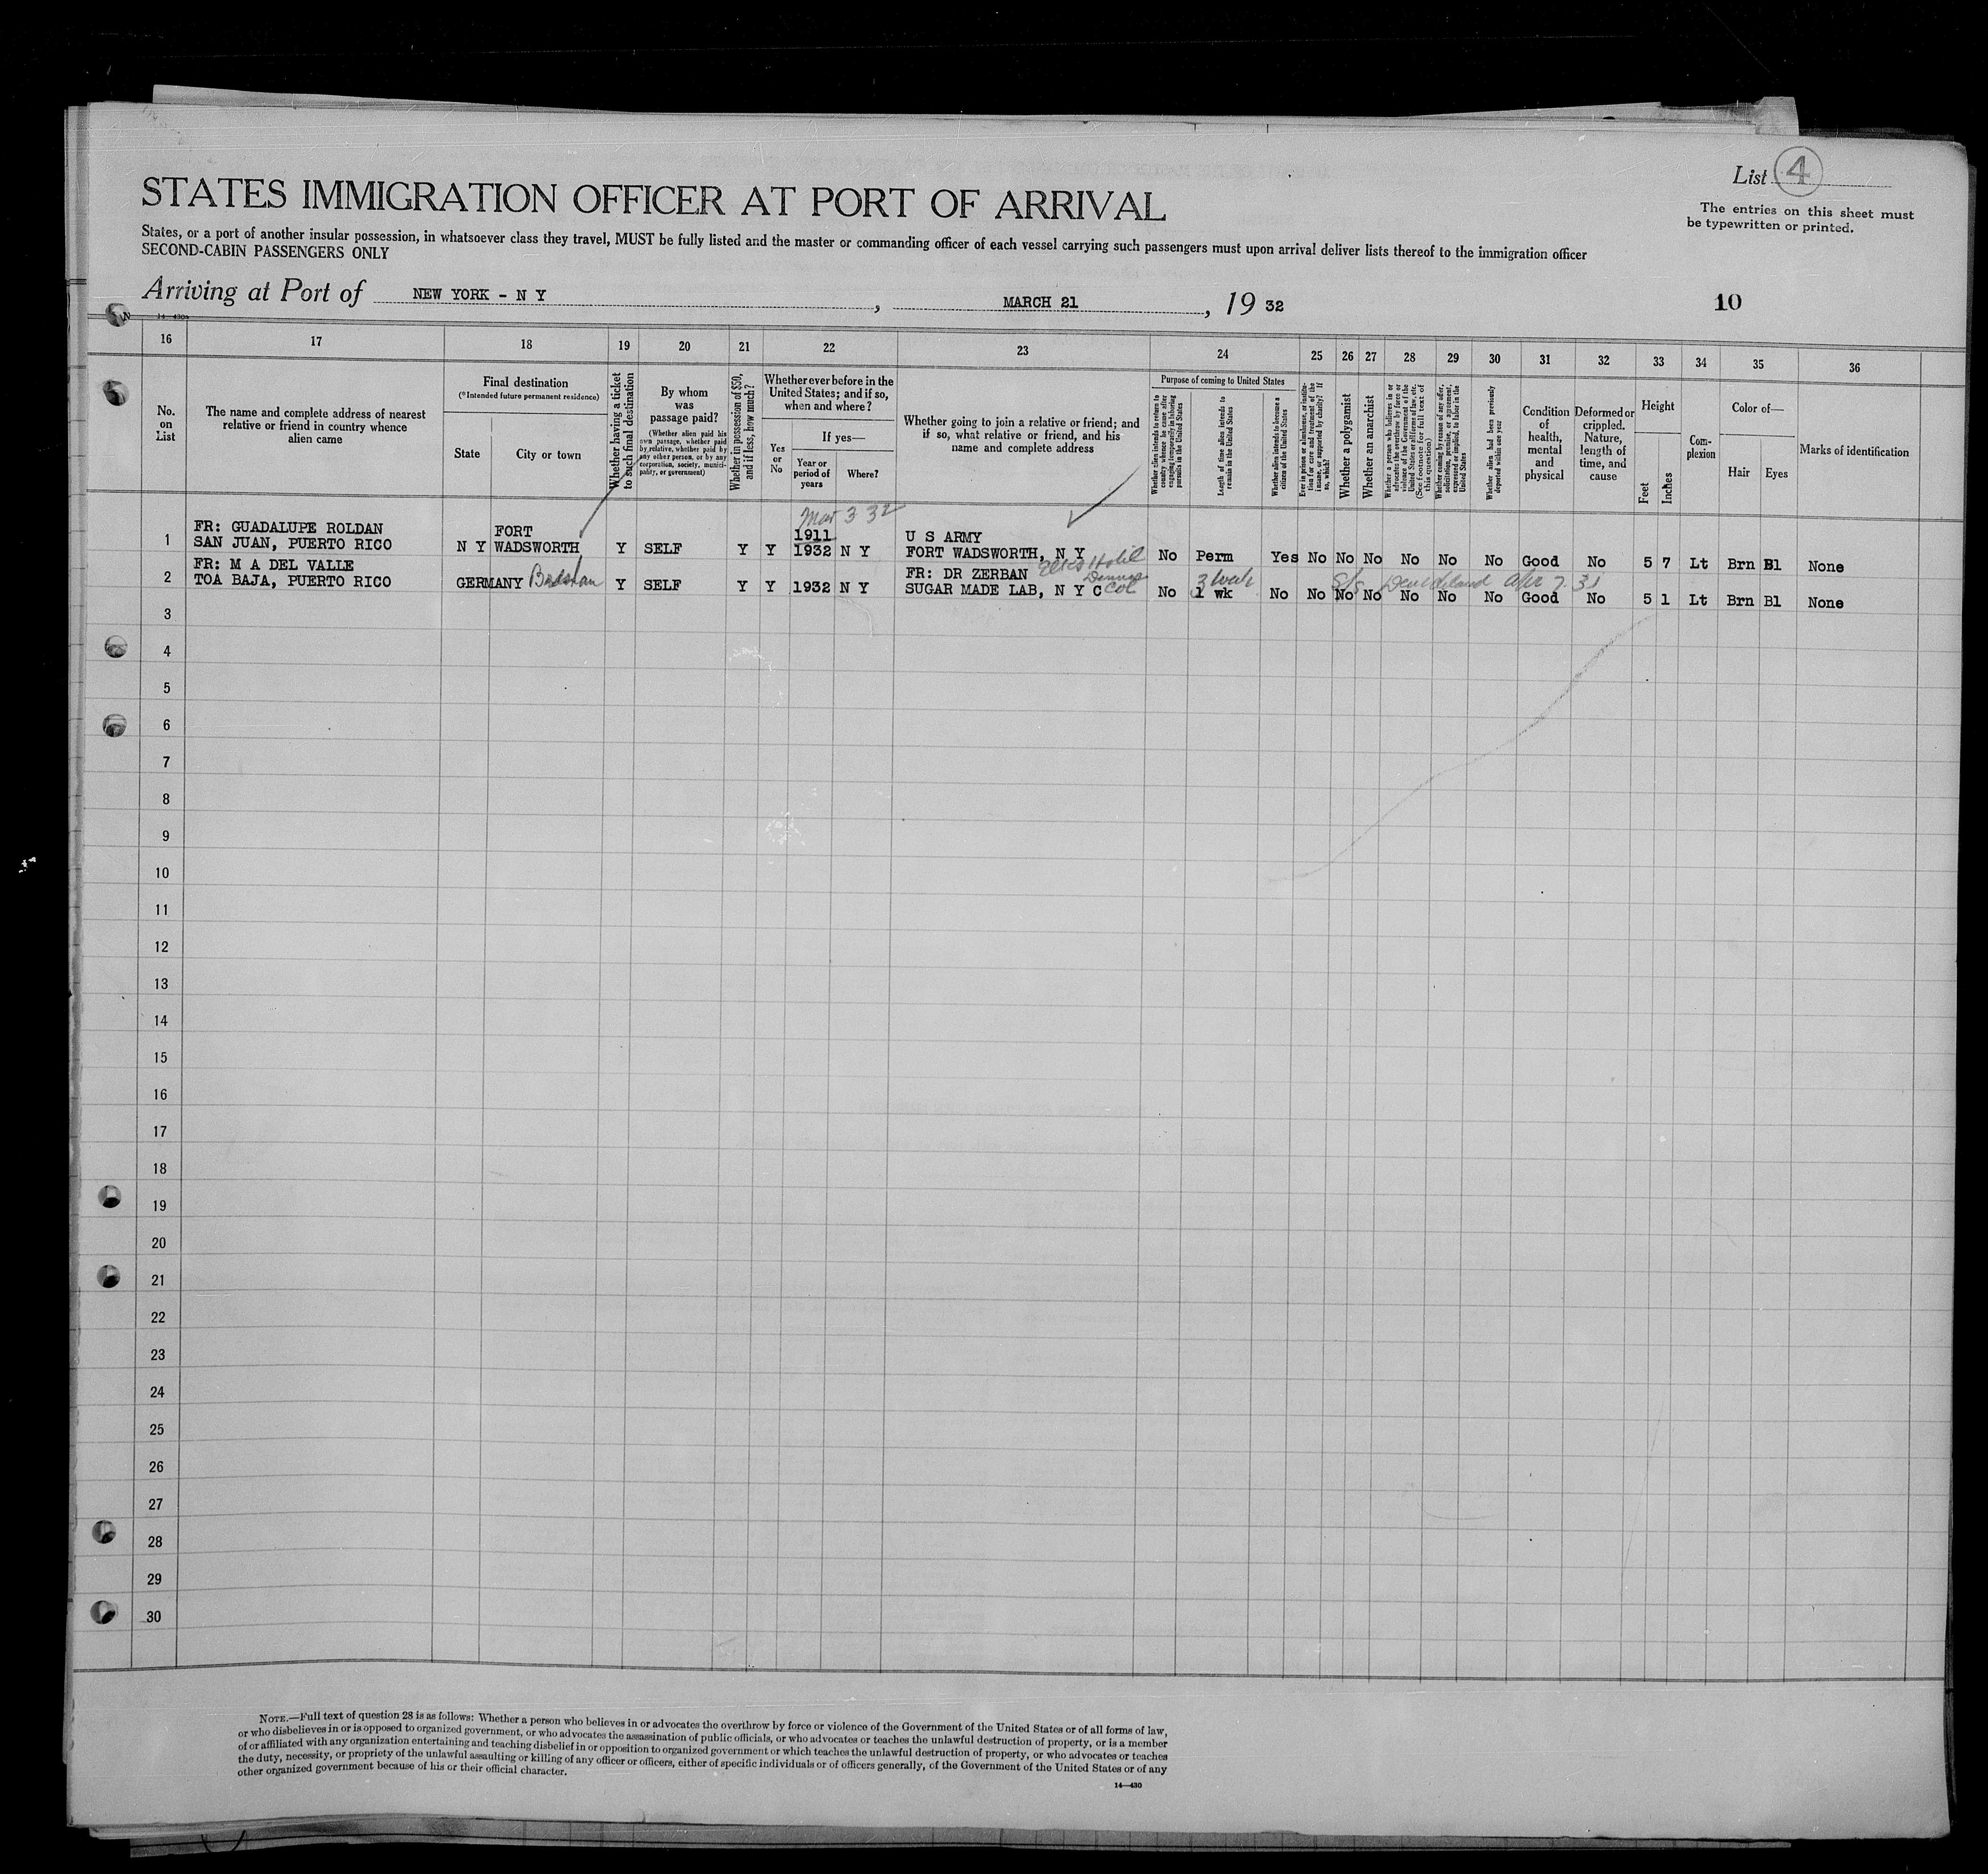 List 4
The entries on this sheet must
be typewritten or printed.
STATES IMMIGRATION OFFICER AT PORT OF ARRIVAL
States, or a port of another insular possession, in whatsoever class they travel, MUST be fully listed and the master or commanding officer of each vessel carrying such passengers must upon arrival deliver lists thereof to the immigration officer
SECOND-CABIN PASSENGERS ONLY
Arriving at Port of NEW YORK - N Y , MARCH 21 , 19 32
10
14—430
16 17 18 19 20 21 22 23 24 25 26 27 28 29 30 31 32 33 34 35 36
No.
on
List
The name and complete address of nearest
relative or friend in country whence
alien came
Final destination
(*Intended future permanent residence)
State
City or town
Whether having a ticket
to such final destination
By whom
was
passage paid?
(Whether alien paid his
own passage, whether paid
by relative, whether paid by
any other person, or by any
corporation, society, munici-
pality, or government)
Whether in possession of $50,
and if less, how much?
Whether ever before in the
United States; and if so,
when and where?
Yes
or
No
If yes—
Year or
period of
years
Where?
Whether going to join a relative or friend; and
if so, what relative or friend, and his
name and complete address
Purpose of coming to United States
Whether alien intends to return to
country whence he came after
engaging temporarily in laboring
pursuits in the United States
Length of time alien intends to
remain in the United States
Whether alien intends to become a
citizen of the United States
Ever in prison or almshouse, or institu-
tion for care and treatment of the
insane, or supported by charity? If
so, which?
Whether a polygamist
Whether an anarchist
Whether a person who believes in or
advocates the overthrow by force or
violence of the Government of the
United States or all forms of law, etc.
(See footnote for full text of
this question)
Whether coming by reason of any offer,
solicitation, promise, or agreement,
expressed or implied, to labor in the
United States
Whether alien had been previously
deported within one year
Condition
of
health,
mental
and
physical
Deformed or
crippled.
Nature,
length of
time, and
cause
Height
Feet
Inches
Com-
plexion
Color of—
Hair
Eyes
Marks of identification
Mar 3 32
1 FR: GUADALUPE ROLDAN FORT 1911 U S ARMY
SAN JUAN, PUERTO RICO N Y WADSWORTH Y SELF Y Y 1932 N Y FORT WADSWORTH, N Y No Perm Yes No No No No No No Good No 5 7 Lt Brn Bl None
2 FR: M A DEL VALLE FR: DR ZERBAN
TOA BAJA, PUERTO RICO GERMANY Y SELF Y Y 1932 N Y SUGAR MADE LAB, N Y C Col No 1 wk No No No No No No No Good No 5 1 Lt Brn Bl None
3 week S/S Deutschland Apr 7
3
4
5
6
7
8
9
10
11
12
13
14
15
16
17
18
19
20
21
22
23
24
25
26
27
28
29
30
NOTE.—Full text of question 28 is as follows: Whether a person who believes in or advocates the overthrow by force or violence of the Government of the United States or of all forms of law,
or who disbelieves in or is opposed to organized government, or who advocates the assassination of public officials, or who advocates or teaches the unlawful destruction of property, or is a member
of or affiliated with any organization entertaining and teaching disbelief in or opposition to organized government or which teaches the unlawful destruction of property, or who advocates or teaches
the duty, necessity, or propriety of the unlawful assaulting or killing of any officer or officers, either of specific individuals or of officers generally, of the Government of the United States or of any
other organized government because of his or their official character.
14—430